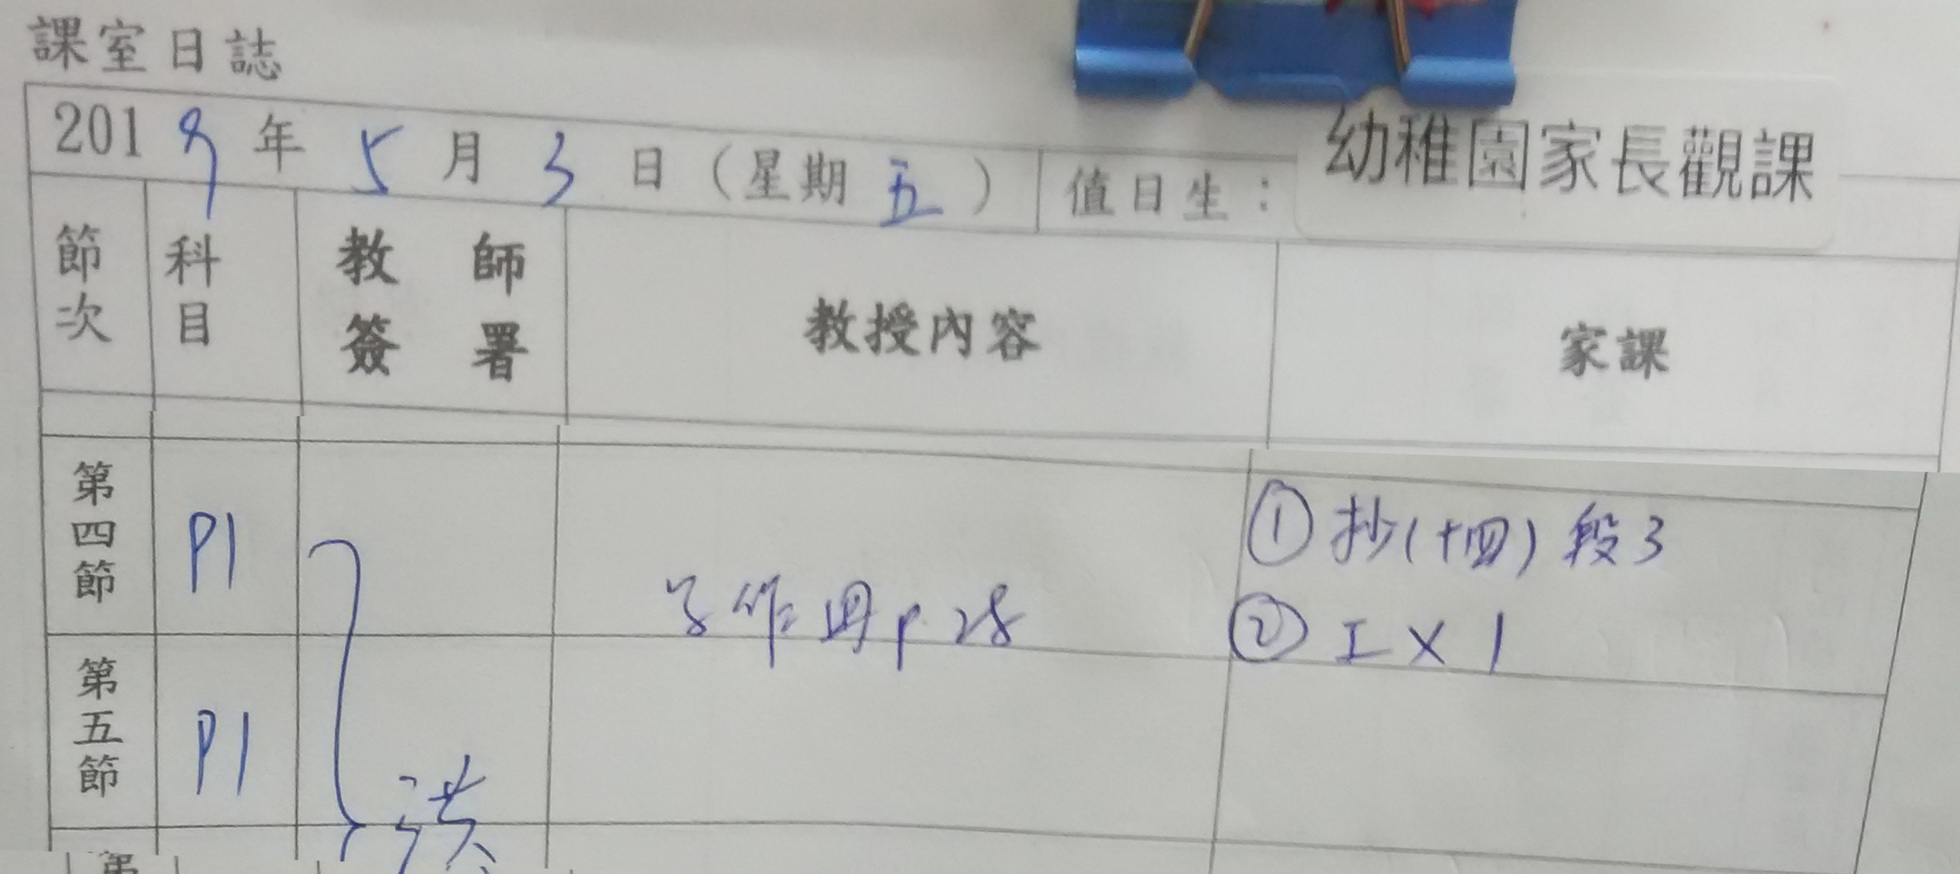 課室日誌
2019年5月3日（星期五）
值日生：
幼稚園家長觀課
節次
科目
教師簽署
教授內容
家課
第四節
P1
作冊p.28
① 抄(十四)段3
② 工×1
第五節
P1
洪